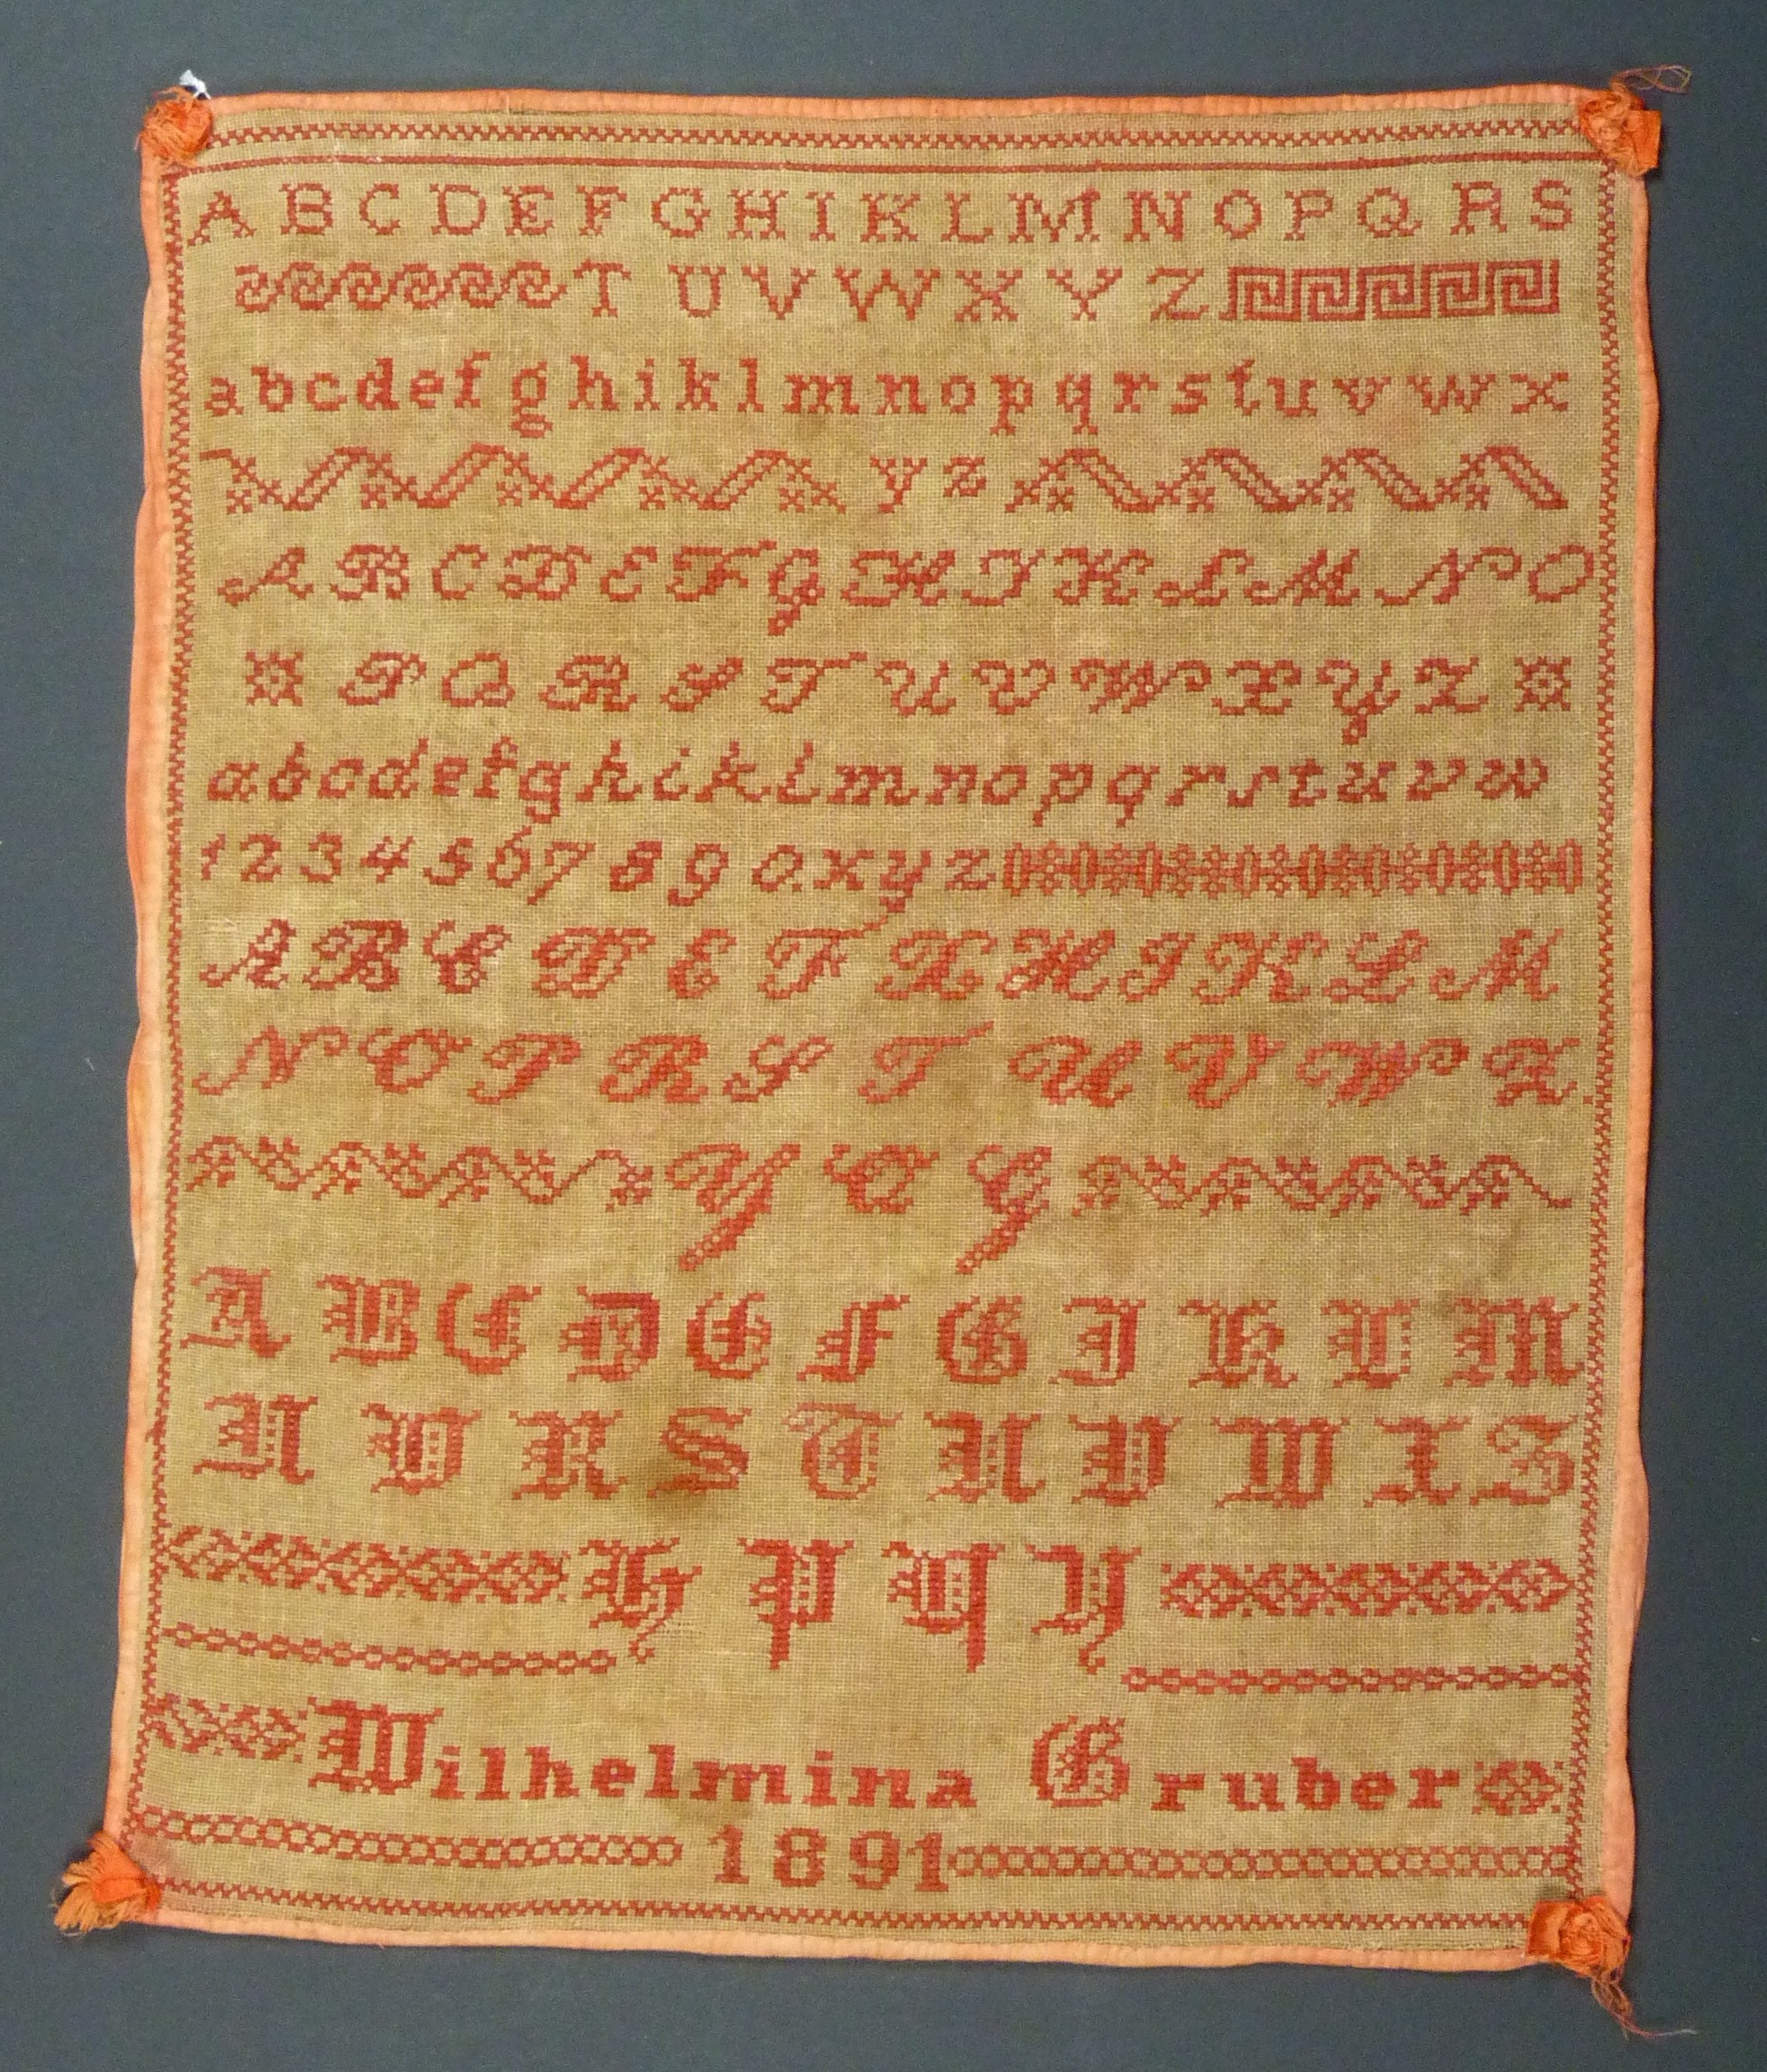 A B C D E F G H I K L M N O P Q R S
T U V W X Y Z
a b c d e f g h i k l m n o p q r s t u v w x
y z
A B C D E F G H I K L M N O
P Q R S T U V W X Y Z
a b c d e f g h i k l m n o p q r s t u v w
1 2 3 4 5 6 7 8 9 0. x y z
A B C D E F X H I K L M
N O P R S T U V W Z.
Y Q G
A B C D E F G I K L M
N O R S T U V W X Z
H P Q Y
Wilhelmina Gruber
1891